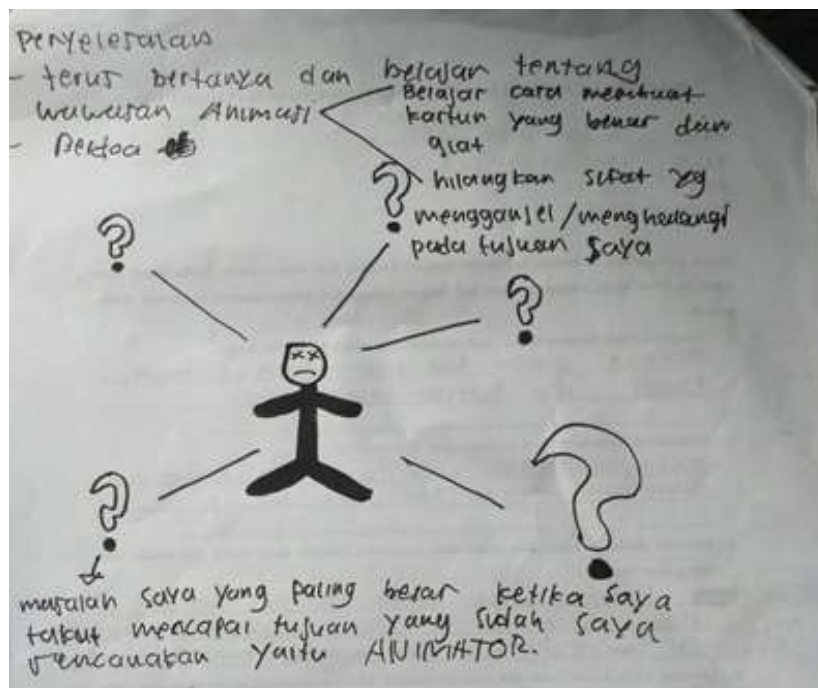 Penyelesaian
- terus bertanya dan belajar tentang
wawasan Animasi
Belajar cara membuat
kartun yang benar dan
giat
hilangkan sifat yg
mengganjel/menghadangi
pada tujuan saya
- Berdoa
?
?
?
?
?
masalah saya yang paling besar ketika saya
takut mencapai tujuan yang sudah saya
rencanakan yaitu ANIMATOR.